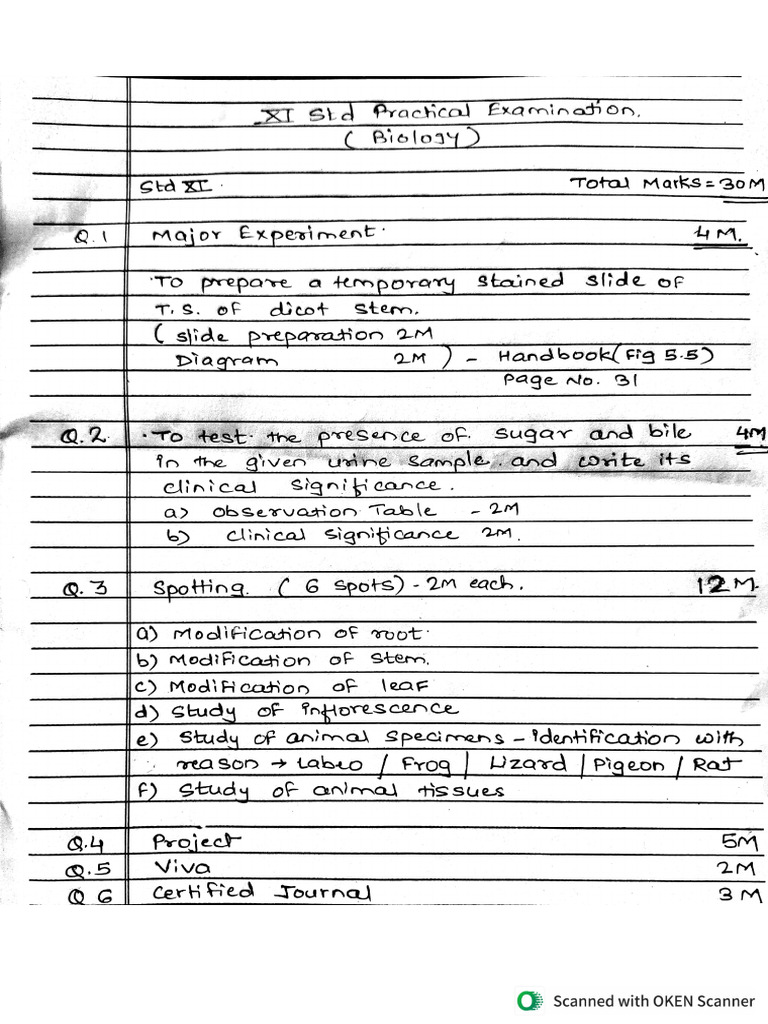 XI Std Practical Examination.
(Biology)
Std XI. Total Marks = 30M
Q.1 Major Experiment. 4M.
To prepare a temporary stained slide of
T.S. of dicot stem.
(slide preparation 2M
Diagram 2M) - Handbook (Fig 5.5)
Page No. 31
Q.2 To test the presence of sugar and bile 4M
in the given urine sample and write its
clinical significance.
a) Observation Table - 2M
b) Clinical significance 2M.
Q.3 Spotting. (6 spots) - 2M each. 12M.
a) Modification of root.
b) Modification of stem.
c) Modification of leaf
d) Study of inflorescence
e) Study of animal specimens - identification with
reason → Labeo / Frog / Lizard / Pigeon / Rat
f) Study of animal tissues
Q.4 Project 5M
Q.5 Viva 2M
Q 6 Certified Journal 3M
Scanned with OKEN Scanner